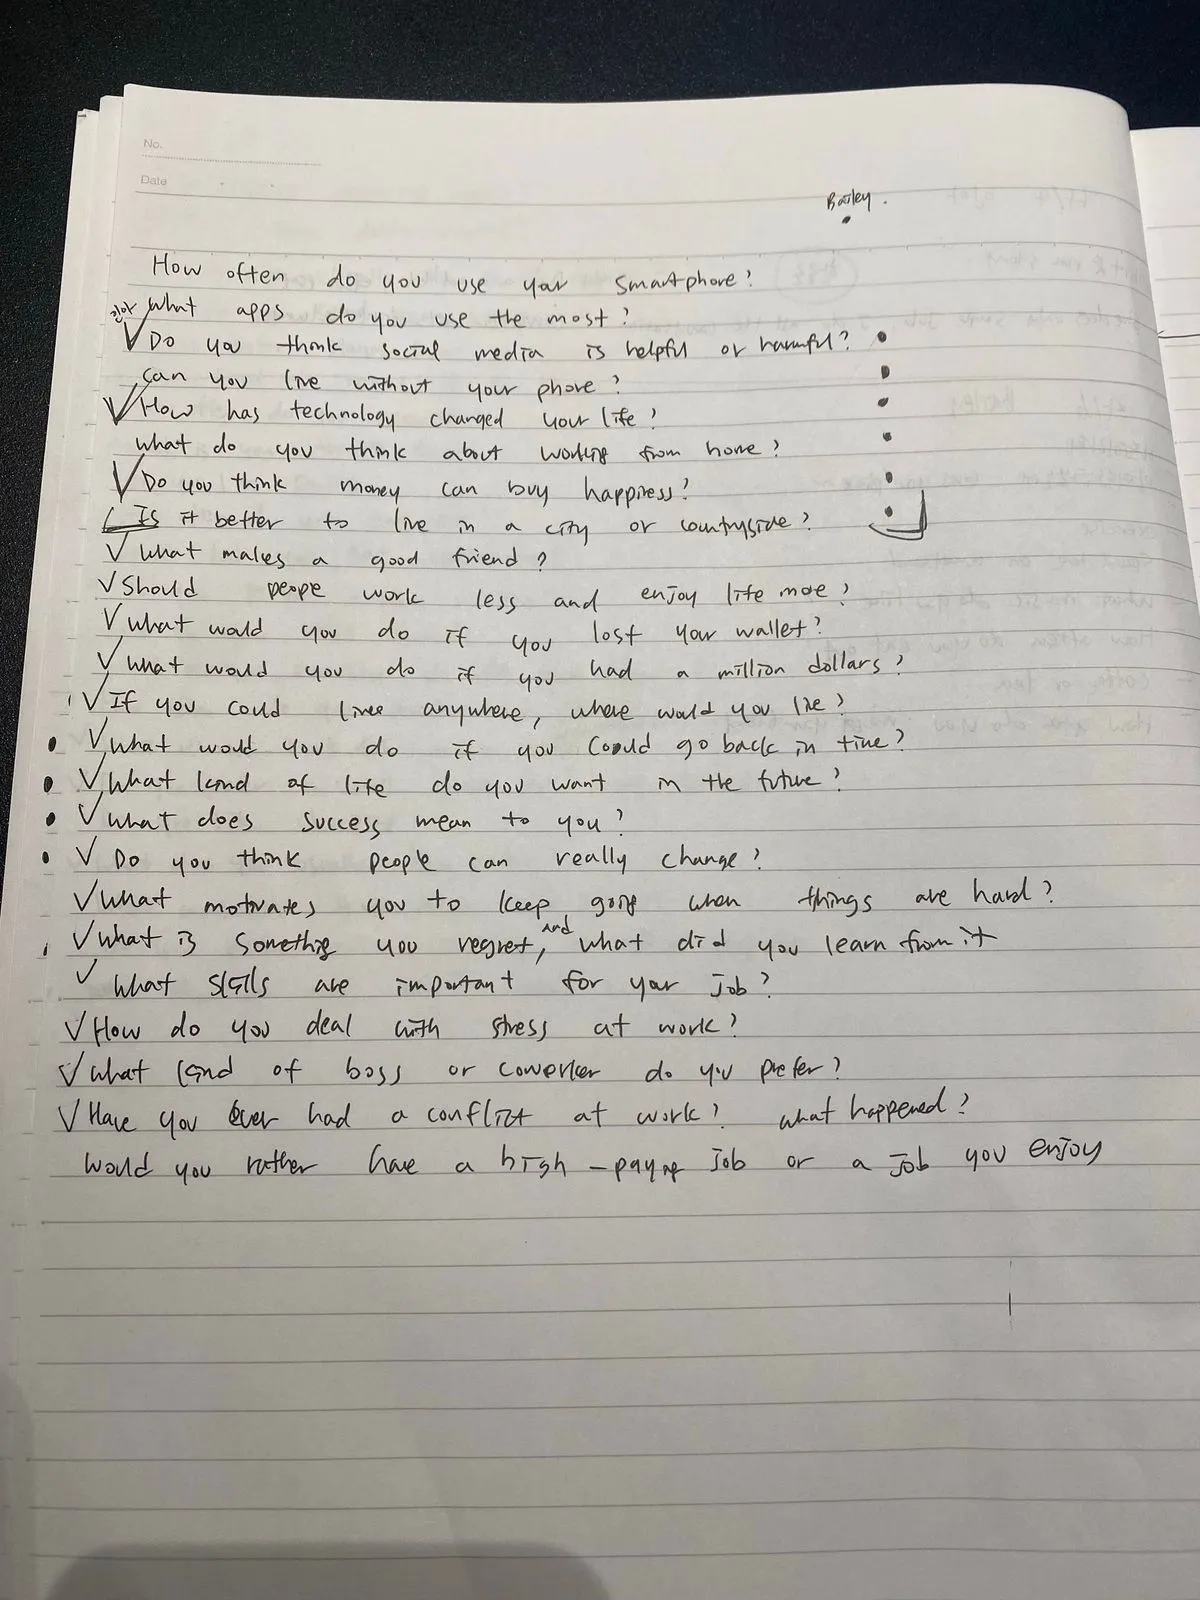 No.
Date
Bailey.
How often do you use your smartphone?
What apps do you use the most?
Do you think social media is helpful or harmful?
Can you live without your phone?
How has technology changed your life?
What do you think about working from home?
Do you think money can buy happiness?
Is it better to live in a city or countryside?
What makes a good friend?
Should people work less and enjoy life more?
What would you do if you lost your wallet?
What would you do if you had a million dollars?
If you could live anywhere, where would you live?
What would you do if you could go back in time?
What kind of life do you want in the future?
What does success mean to you?
Do you think people can really change?
What motivates you to keep going when things are hard?
What is something you regret, and what did you learn from it
What skills are important for your job?
How do you deal with stress at work?
What kind of boss or coworker do you prefer?
Have you ever had a conflict at work? what happened?
Would you rather have a high-paying job or a job you enjoy